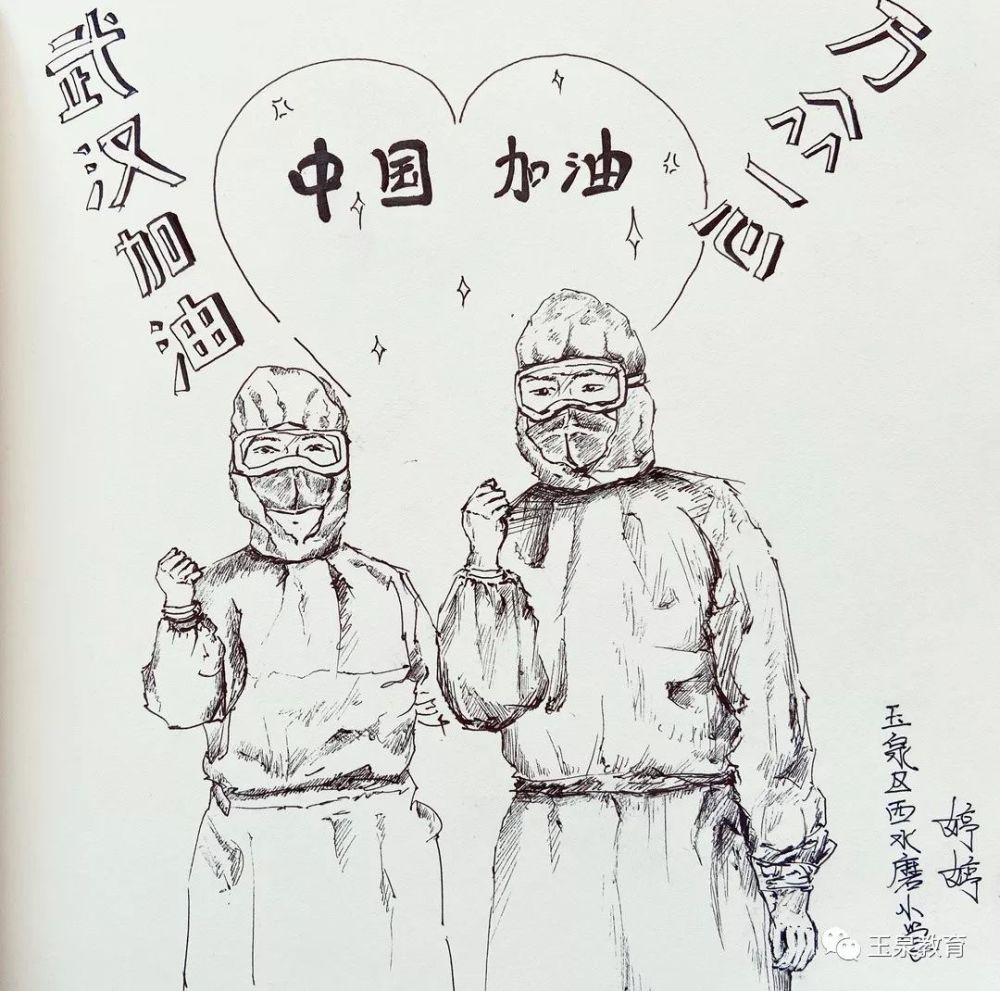 武汉加油
中国 加油
万众一心
玉泉区西水磨小学
婷婷
玉泉教育